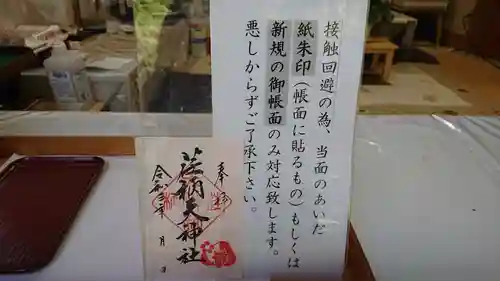 接触回避の為、当面のあいだ
紙朱印(帳面に貼るもの)もしくは
新規の御帳面のみ対応致します。
悪しからずご了承下さい。
奉拝
荏柄天神社
令和三年　月　日